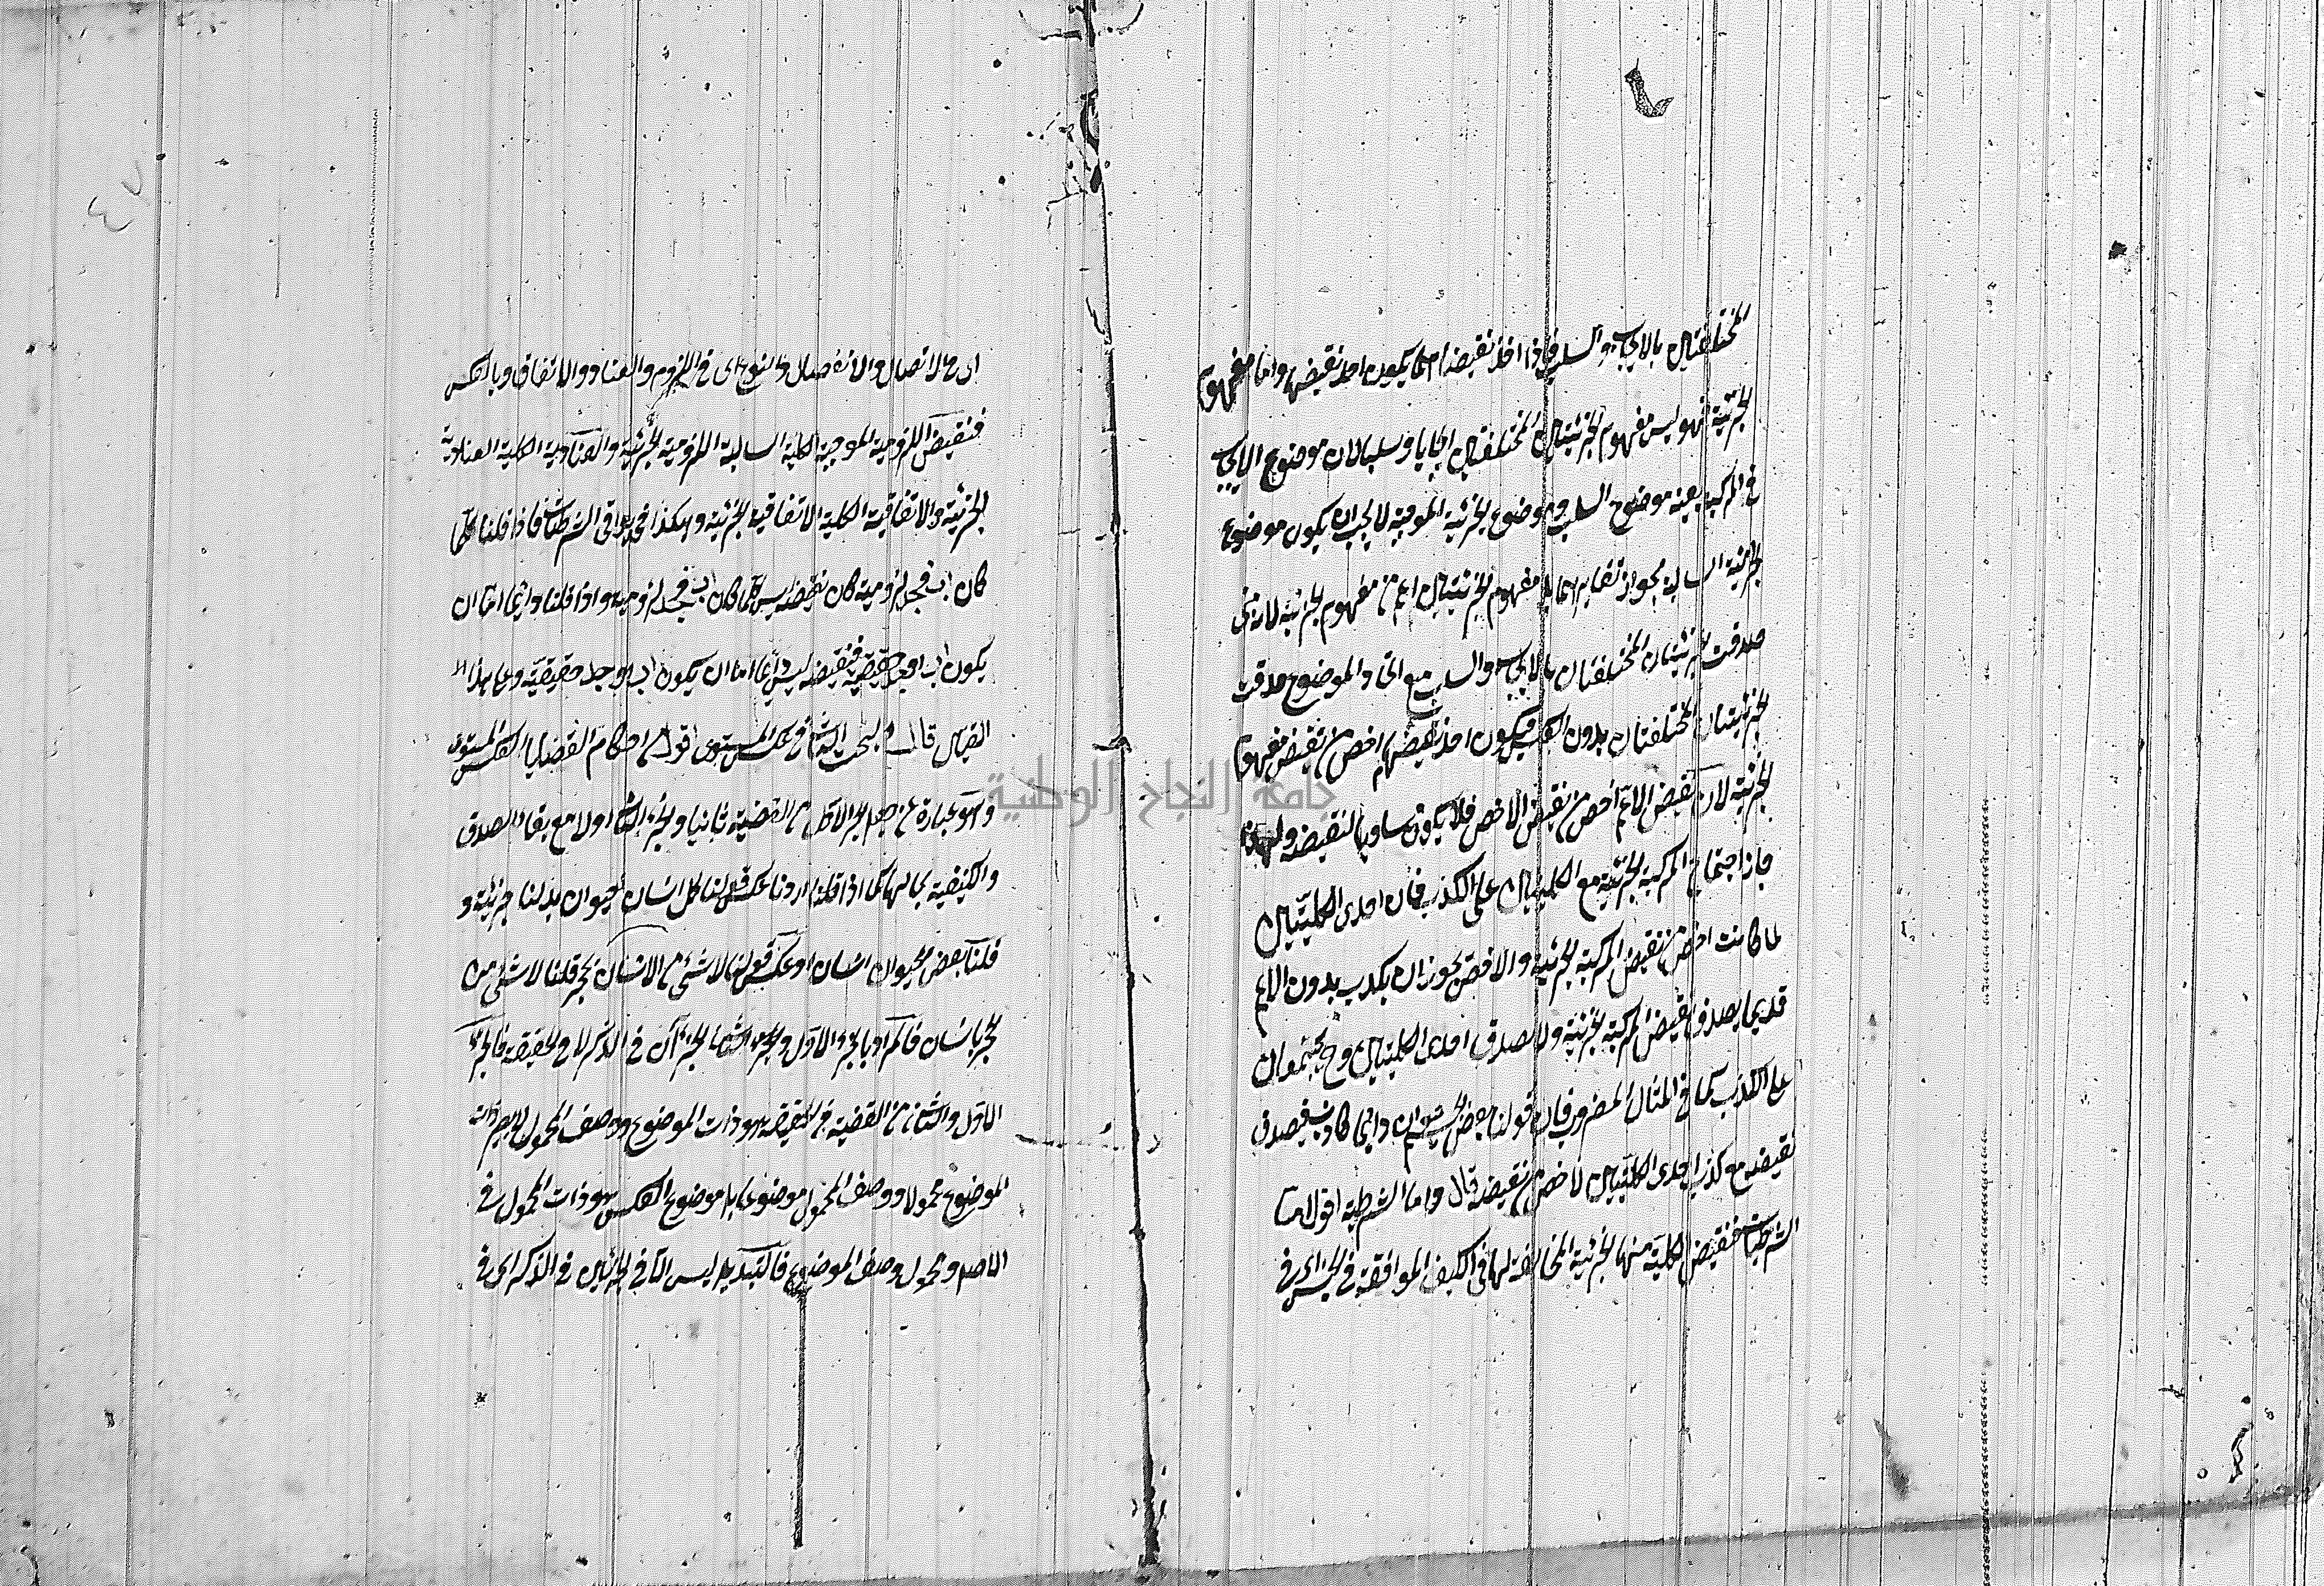 المختلفتين بالايجاب والسلب فاذا اخذ نقيضاهما يكون احد نقيضهما واما مفهوم
الجزئية فهو ليس مفهوم الجزئيتين المختلفتين ايجابا وسلبا لان موضوع الايجاب
في المركبة بعينه موضوع السلب وموضوع الجزئية الموجبة لا يجب ان يكون موضوع
الجزئية السالبة لجواز تغايرهما بل مفهوم الجزئيتين اعم من مفهوم الجزئية لانه متى
صدقت الجزئيتان المختلفتان بالايجاب والسلب مع اتحاد الموضوع صدقت
الجزئيتان المختلفتان بدون العكس فيكون احد نقيضهما اخص من نقيض مفهوم
الجزئية لان نقيض الاعم اخص من نقيض الاخص فلا يكون مساويا لنقيضه ولهذا
جاز اجتماع المركبة الجزئية مع الكليتين على الكذب فان احدى الكليتين
لما كانت اخص من نقيض المركبة الجزئية والاخص يجوز ان يكذب بدون الاعم
فربما يصدق نقيض المركبة الجزئية ولا يصدق احدى الكليتين وح يجتمعان
على الكذب كما في المثال المضروب فان قولنا بعض الجسم حيوان دائما كاذب فيصدق
نقيضه مع كذب احدى الكليتين الاخص من نقيضه قال واما الشرطية اقول اما
الشرطيات فنقيض الكلية منها الجزئية المخالفة لها في الكيف الموافقة في الجنس اي في
اي في الاتصال والانفصال والنوع اي في اللزوم والعناد والاتفاق وبالعكس
فنقيض اللزومية الموجبة الكلية السالبة اللزومية الجزئية والعنادية الكلية العنادية
الجزئية والاتفاقية الكلية الاتفاقية الجزئية وهكذا في بواقي الشرطيات فاذا قلنا كلما
كان اب فجد لزومية كان نقيضه ليس كلما كان اب فجد لزومية واذا قلنا دائما اما ان
يكون اب اوجد حقيقية فنقيضه ليس دائما اما ان يكون اب اوجد حقيقية وعلى هذا
القياس قال البحث الثالث في العكس المستوي اقول من احكام القضايا العكس المستوي
وهو عبارة عن جعل الجزء الاول من القضية ثانيا والجزء الثاني اولا مع بقاء الصدق
والكيفية بحالهما كما اذا اردنا عكس قولنا كل انسان حيوان بدلنا جزئيه و
قلنا بعض الحيوان انسان او عكس قولنا لا شئ من الانسان بحجر قلنا لا شئ من
الحجر بانسان فالمراد بالجزء الاول والجزء الثاني الجزءان في الذكر لا في الحقيقة فالجزء
الاول والثاني من القضية في الحقيقة هو ذات الموضوع ووصف المحمول لا يصير ذات
الموضوع محمولا ووصف المحمول موضوعا بل موضوع العكس هو ذات المحمول في
الاصل ومحمول وصف الموضوع فالتبديل ليس الا في الجزئين في الذكر اي في
جامعة النجاح الوطنية
٤٧